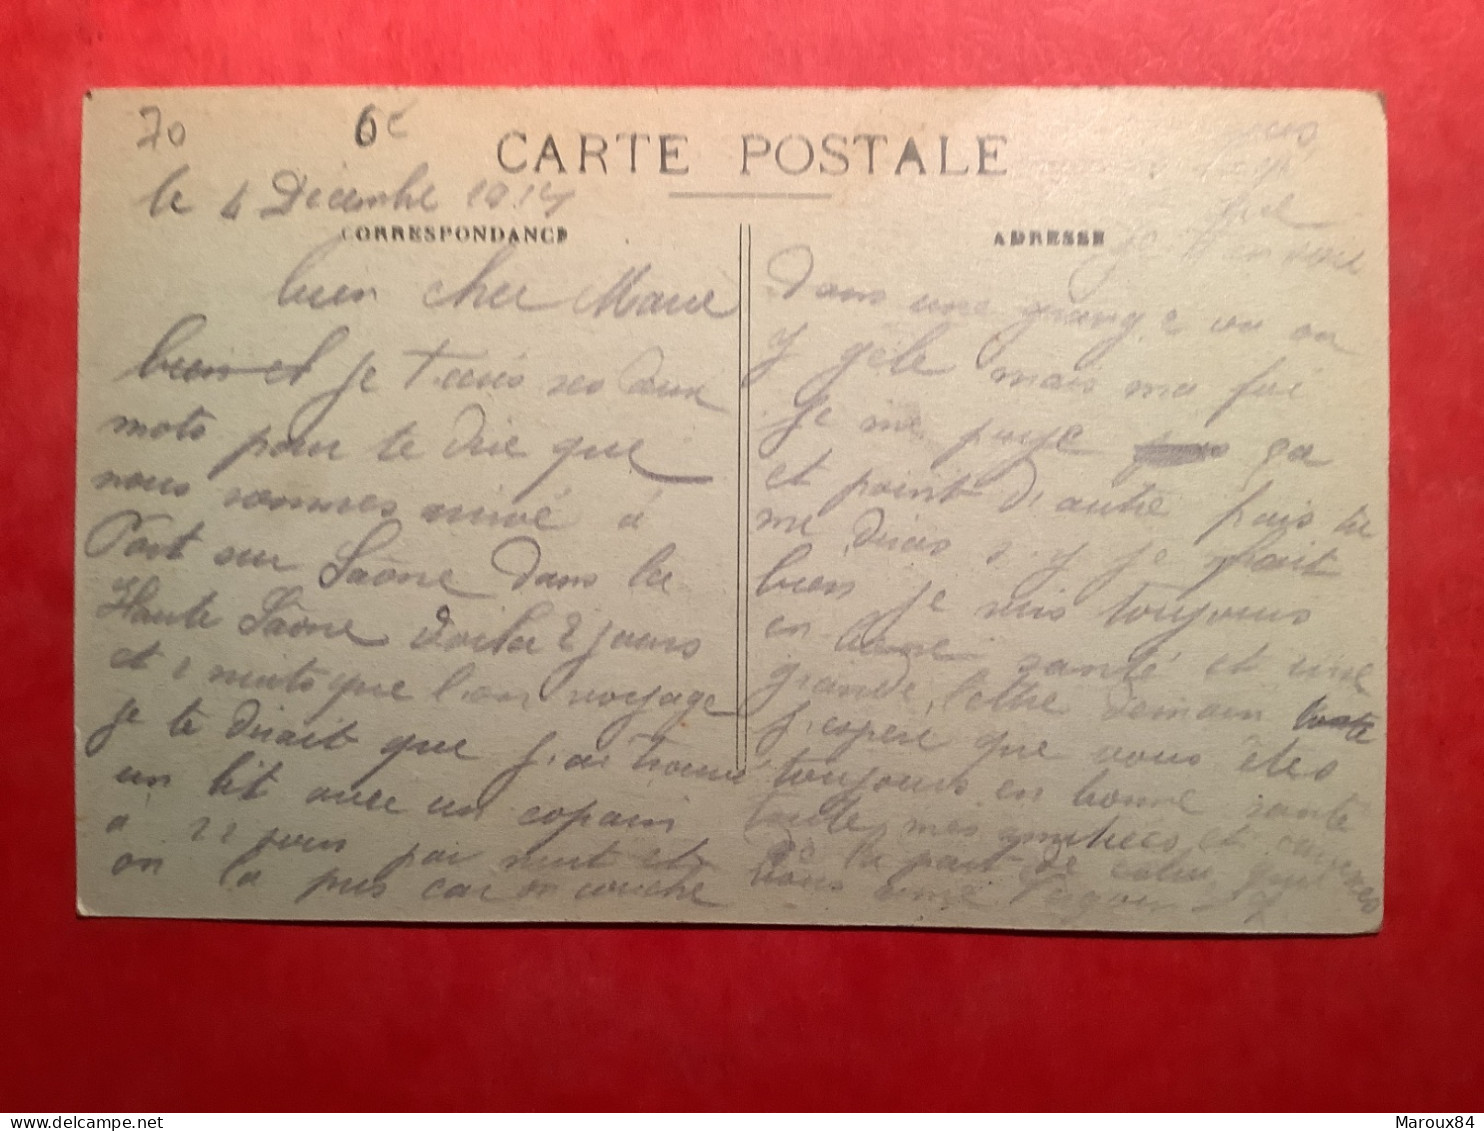 70 6€
CARTE POSTALE
le 4 Décembre 1917
CORRESPONDANCE
ADRESSE
bien cher Marie
bien et je t'écris ses deux
mots pour te dire que
nous sommes arrivé à
Port sur Saône dans la
Haute Saône voila 2 jours
et 2 nuits que l'on voyage
je te dirait que j'ai trouvé
un lit avec un copain
a 22 sous par nuit et
on la pris car on couche
Dans une grange ou on
y gèle mais ma foi
je me paye ça
et point d'autre fois tu
me diras s'y je fait
bien je suis toujours
en bonne santé et une
grande lettre demain
j'espere que vous êtes
toujours en bonne santé
toute mes amitiées et
de la part de celui qui
vous aime
Maroux84